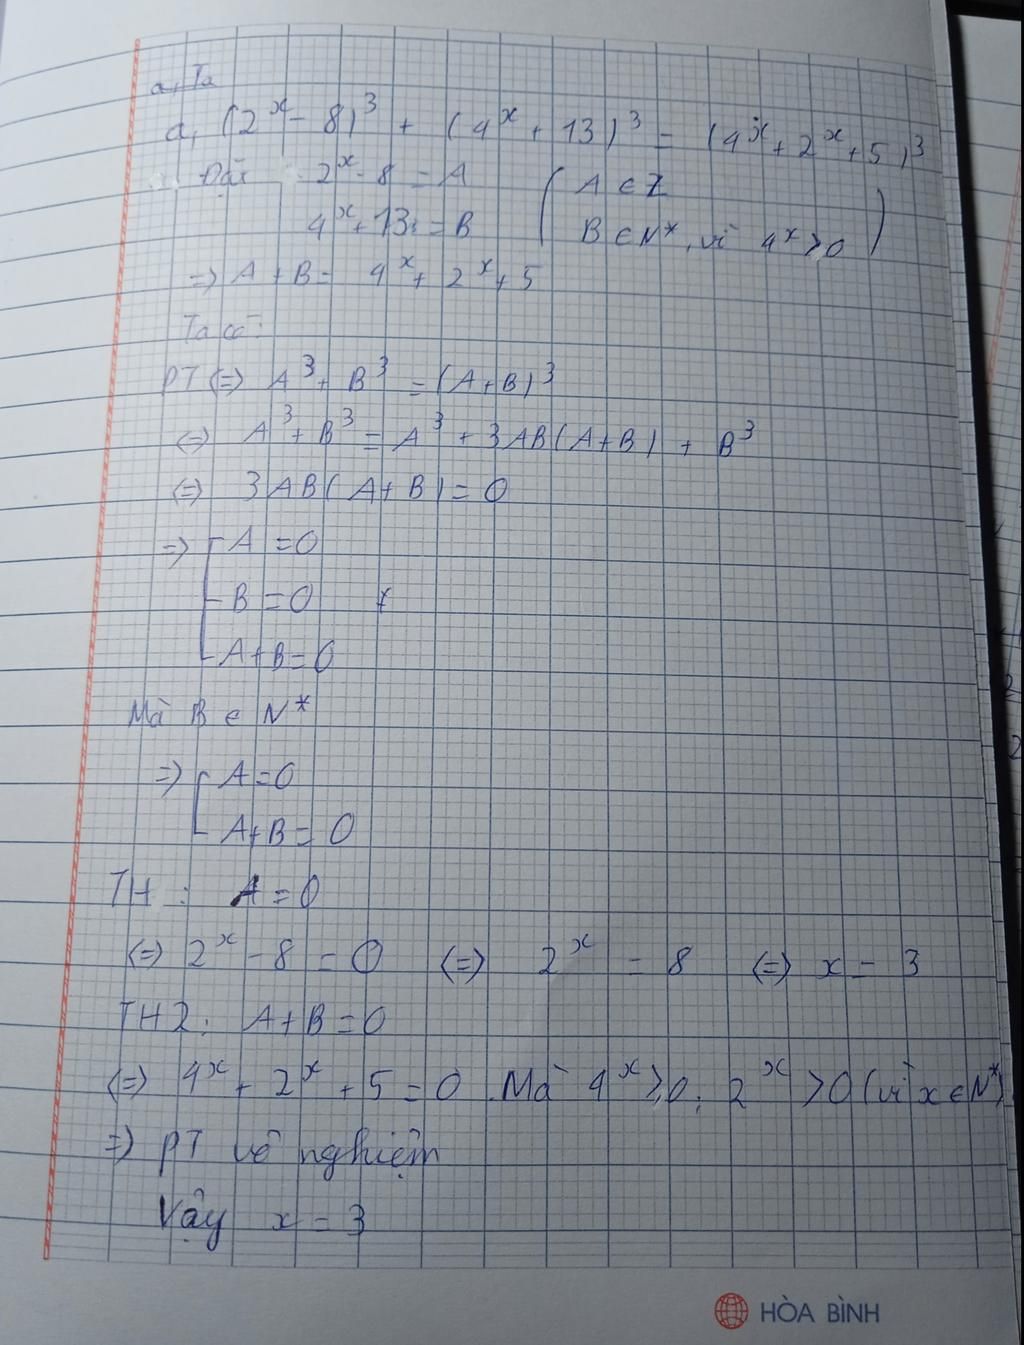 a, Ta
a, (2^x - 8)^3 + (4^x + 13)^3 = (4^x + 2^x + 5)^3
Đặt 2^x - 8 = A ( A ∈ Z
4^x + 13 = B B ∈ N*, vì 4^x ≥ 0 )
=> A + B = 4^x + 2^x + 5
Ta có:
PT <=> A^3 + B^3 = (A+B)^3
<=> A^3 + B^3 = A^3 + 3AB(A+B) + B^3
<=> 3AB(A+B) = 0
=> [ A = 0
B = 0
A+B = 0
Mà B ∈ N*
=> [ A = 0
A+B = 0
TH : A = 0
<=> 2^x - 8 = 0 <=> 2^x = 8 <=> x = 3
TH2: A+B = 0
<=> 4^x + 2^x + 5 = 0. Mà 4^x ≥ 0; 2^x > 0 (vì x ∈ N*)
=> PT vô nghiệm
Vậy x = 3
HÒA BÌNH